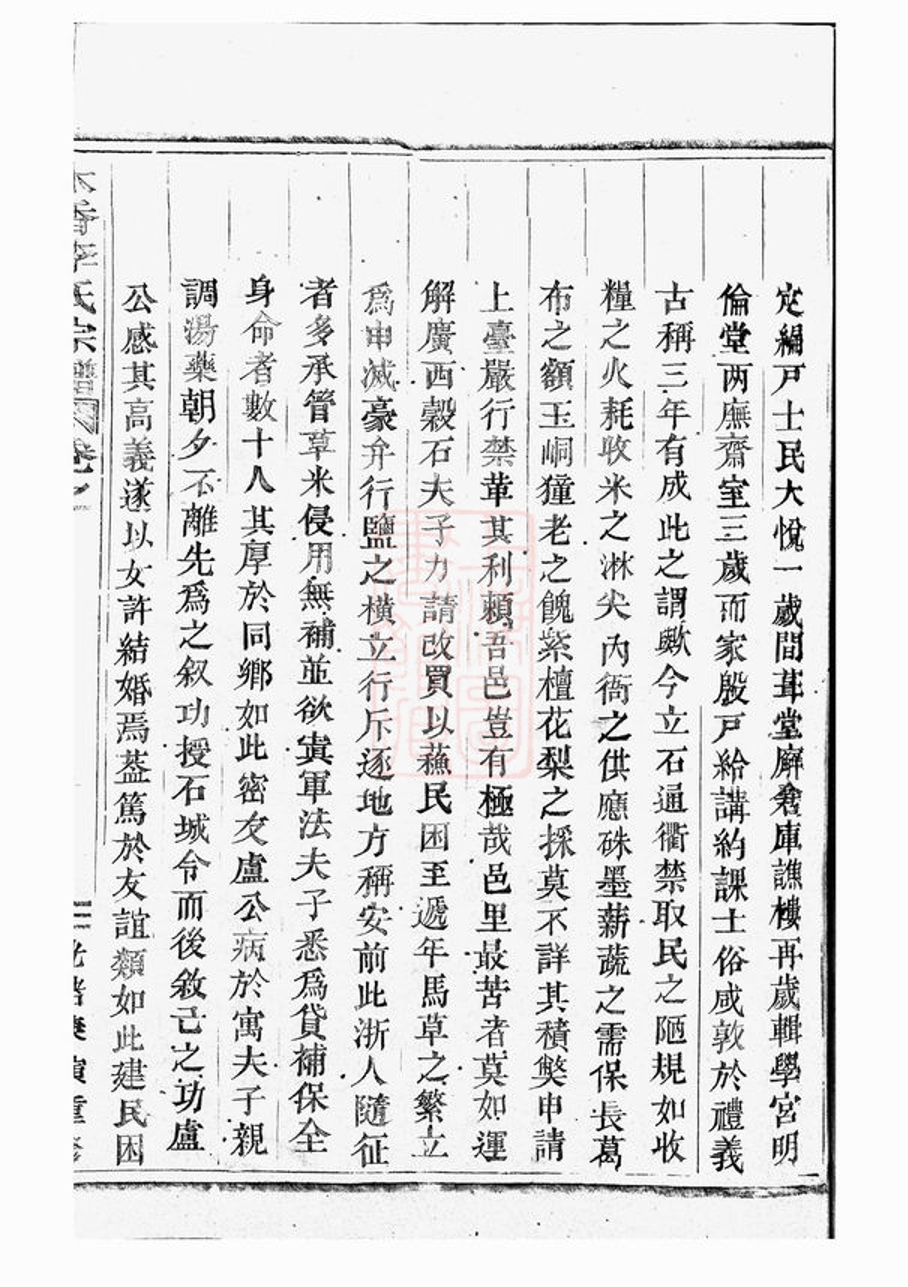 定編戸士民大悅一歲間葺堂廨倉庫譙樓再歲輯學宮明
倫堂两廡齋室三歲而家殷戸給講約課士俗咸敦於禮義
古稱三年有成此之謂歟今立石通衢禁取民之陋規如收
糧之火耗收米之淋尖內衙之供應硃墨薪蔬之需保長葛
布之額玉峒獞老之餽紫檀花梨之採莫不詳其積獘申請
上臺嚴行禁革其利賴吾邑豈有極哉邑里最苦者莫如運
解廣西穀石夫子力請改買以蘓民困至遞年馬草之繁立
爲申减豪弁行鹽之横立行斥逐地方稱安前此浙人隨征
者多承管草米侵用無補並欲寘軍法夫子悉爲貸補保全
身命者數十人其厚於同鄉如此密友盧公病於寓夫子親
調湯藥朝夕不離先爲之叙功授石城令而後敘己之功盧
公感其高義遂以女許結婚焉葢篤於友誼類如此建民困
香李氏宗譜 卷之
光緒 重修